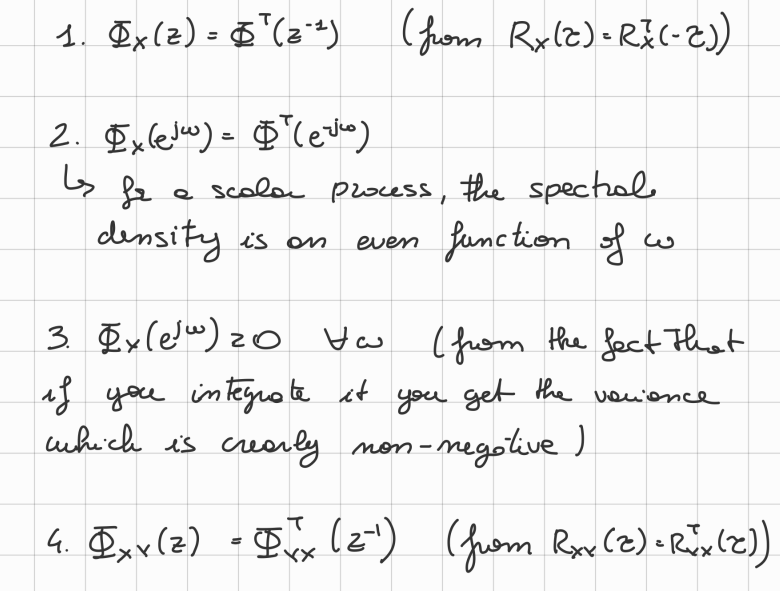 1. Φ_X(z) = Φ^T(z^-1) (from R_X(τ) = R_X^T(-τ))
2. Φ_X(e^jω) = Φ^T(e^-jω)
↳ for a scalar process, the spectral
density is an even function of ω
3. Φ_X(e^jω) ≥ 0 ∀ω (from the fact that
if you integrate it you get the variance
which is crearly non-negative)
4. Φ_XY(z) = Φ_YX^T(z^-1) (from R_XY(τ) = R_YX^T(τ))